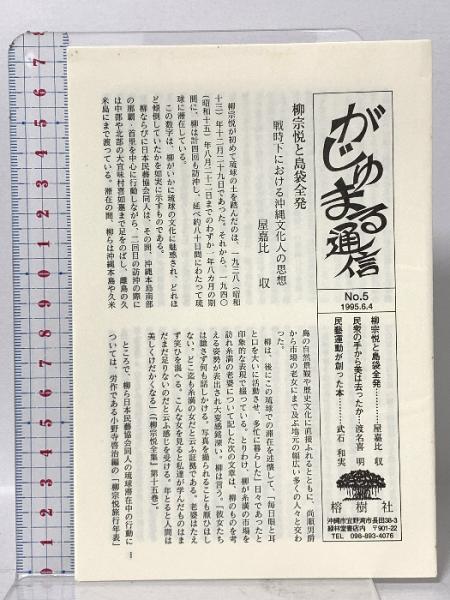 がじゅまる通信
No.5
1995.6.4
柳宗悦と島袋全発…………屋嘉比 収
民衆の手から美は去ったか…波名喜 明
民藝運動が創った本………武石 和実
榕樹社
沖縄市宜野湾市長田38-3
緑林堂書店内 〒901-22
TEL 098-893-4076
柳宗悦と島袋全発
戦時下における沖縄文化人の思想
屋嘉比 収
柳宗悦が初めて琉球の土を踏んだのは、一九三八(昭和
十三)年十二月二十九日であった。それから、一九四〇
(昭和十五)年八月二十二日までのわずか一年八カ月の期
間に、柳は計四回も訪沖し、延べ約八十日間にわたって琉
球に滞在している。
この数字は、柳がいかに琉球の文化に魅惑され、どれほ
ど傾倒していたかを如実に示すものである。
柳ならびに日本民藝協會同人は、その間、沖縄本島南部
の那覇・首里を中心に行動しながら、二回目の訪沖の際に
は中部や北部の大宜味村喜如嘉まで足をのばし、離島の久
米島にまで渡っている。滞在の間、柳らは沖縄本島や久米
島の自然景観や歴史文化に直接ふれるとともに、尚順男爵
から市場の老女にまで及ぶ地元の幅広い多くの人々と交わ
った。
柳は、後にこの琉球での滞在を述懐して、「毎日眼と耳
と口を大いに活動させ、多忙に暮らした」日々であったと
印象的な表現で綴っている。とりわけ、柳が糸満の市場を
訪れ糸満の老婆について記した次の文章は、柳のものを考
える姿勢が表出され大変感銘深い。柳は言う。「彼女たち
は臆さず何も話しかける。写真を撮られることも厭ひはし
ない。どこ迄も糸満の女だと云ふ証拠である。老婆はたえ
ず笑ひを湛へる。こんな女を見ると私達が学んだものはま
だまだ足りないのだと云ふ感じを受ける。年とると人間は
美しくけだかくなる」(『柳宗悦全集』第十五巻)。
ところで、柳ら日本民藝協會同人の琉球滞在中の行動に
ついては、労作である小野寺啓治編の「柳宗悦旅行年表」